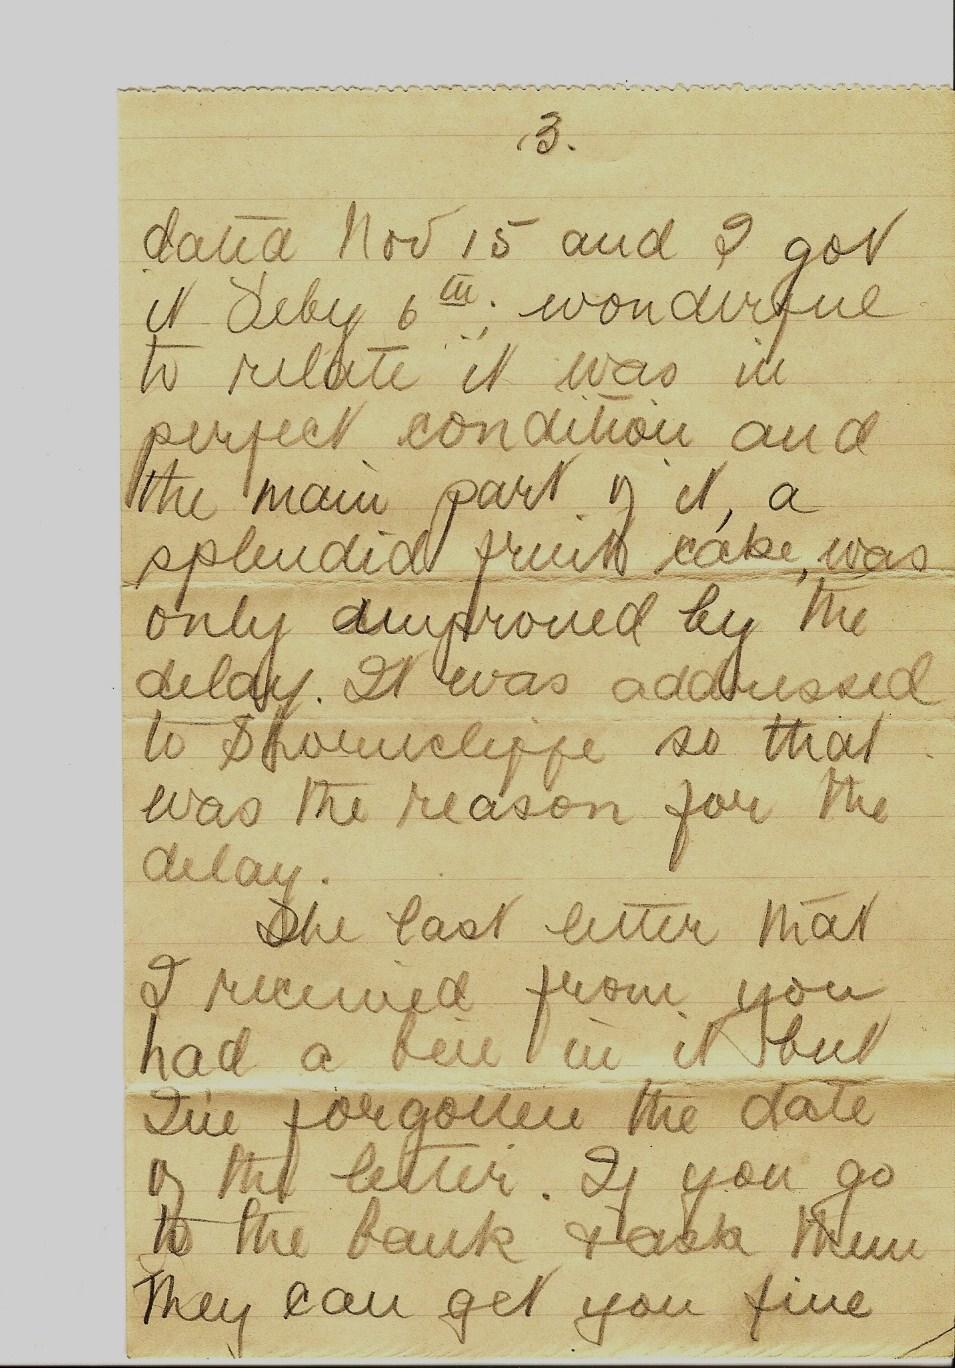 3.
dated Nov 15 and I got
it Feby 6th; wonderful
to relate it was in
perfect condition and
the main part of it, a
splendid fruit cake, was
only improved by the
delay. It was addressed
to Shorncliffe so that
was the reason for the
delay.
The last letter that
I received from you
had a bill in it but
I've forgotten the date
of the letter. If you go
to the bank & ask them
they can get you five